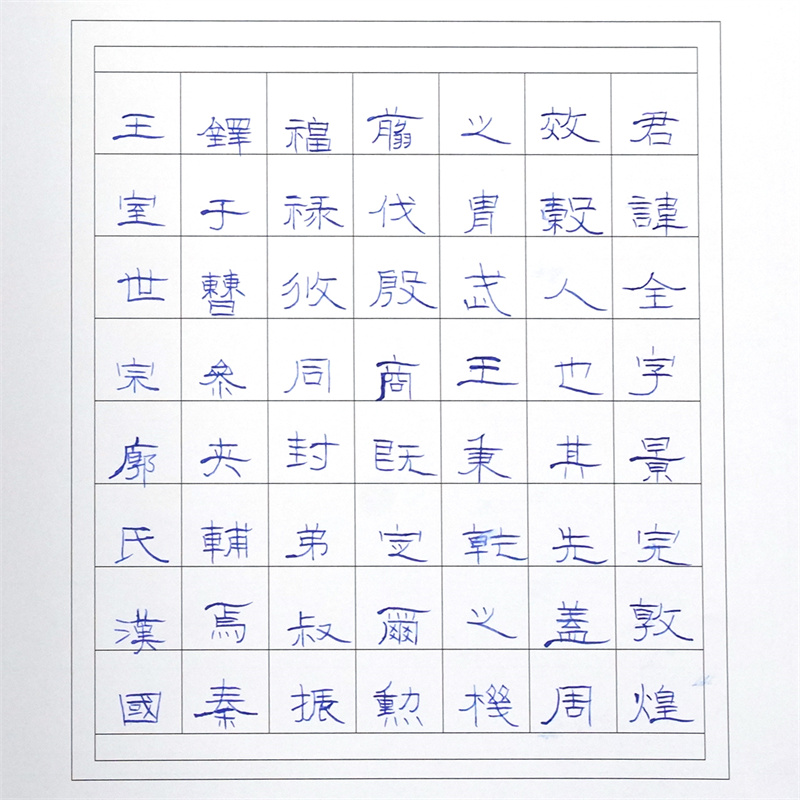 君諱全字景完敦煌
效穀人也其先蓋周
之胄武王秉乾之機
翦伐殷商既定爾勳
福禄攸同封弟叔振
鐸于曹参夾輔焉秦
王室世宗廓氏漢國